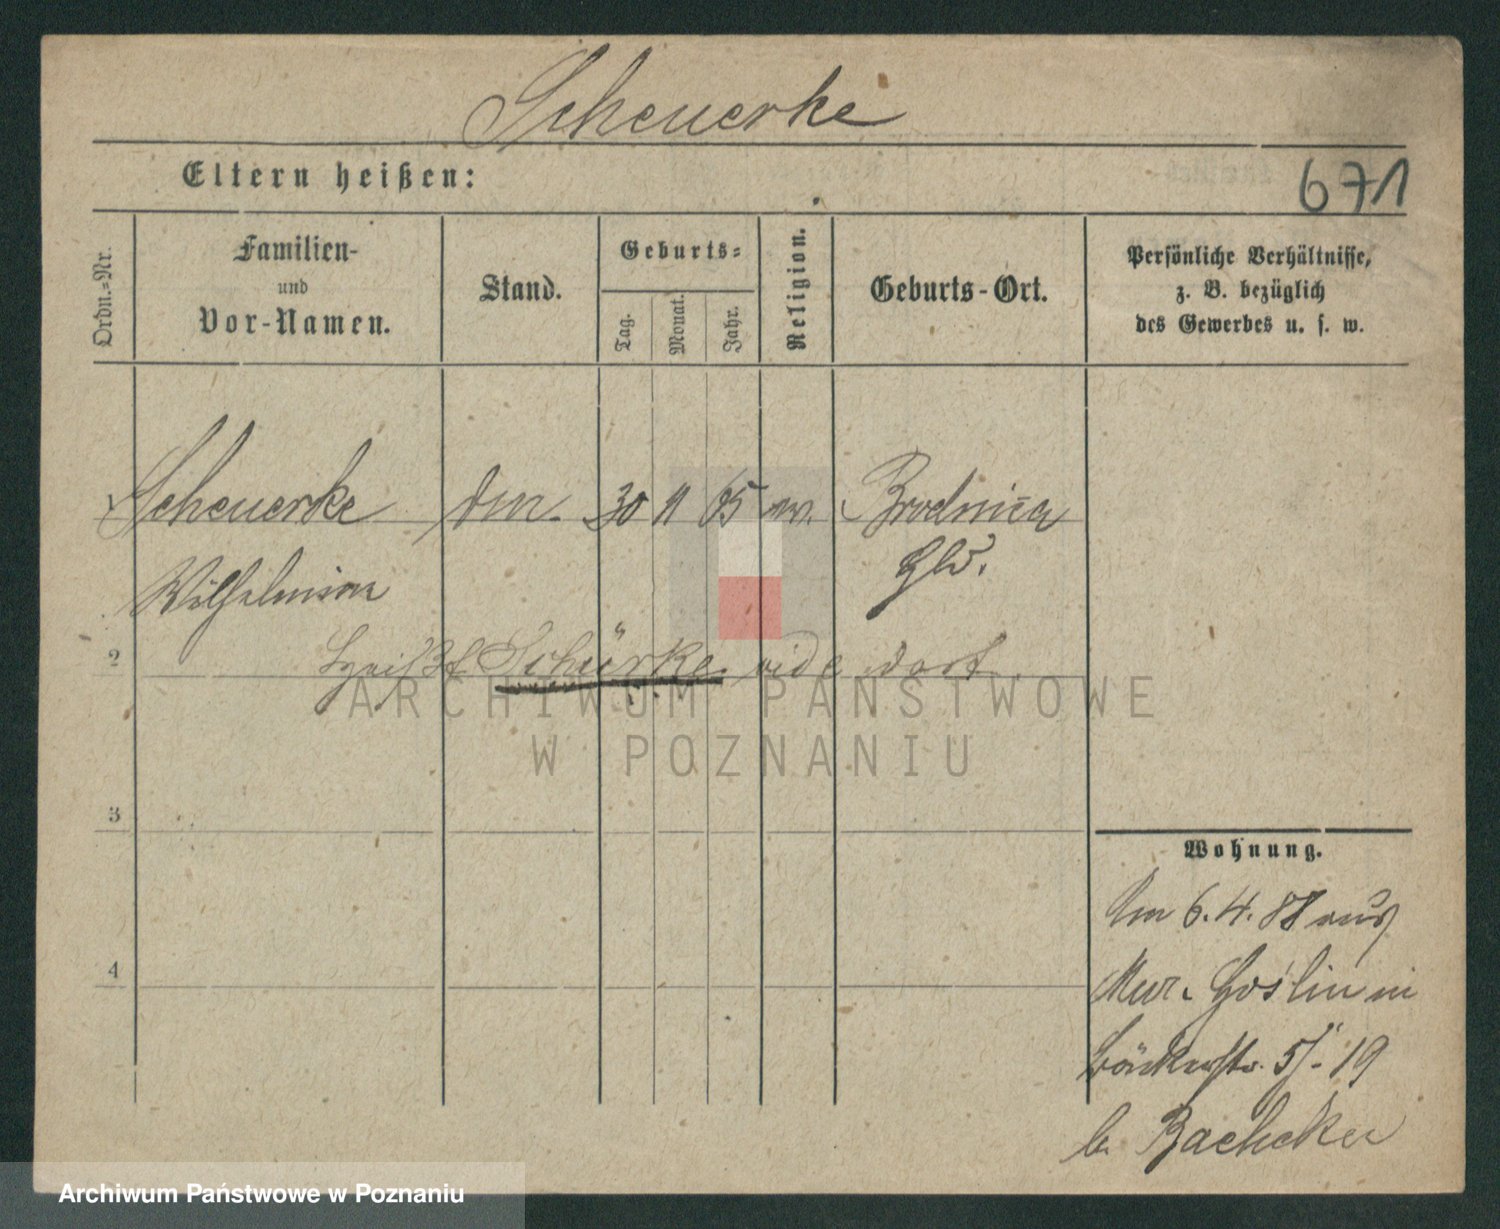 Scheuerke
Eltern heißen:
671
Ordn.-Nr.
Familien-
und
Vor-Namen.
Stand.
Geburts-
Tag.
Monat.
Jahr.
Religion.
Geburts-Ort.
Persönliche Verhältnisse,
z. B. bezüglich
des Gewerbes u. s. w.
Scheuerke 30 11 65 Brodnica
Wilhelmine
2
heißt Schürke vide dort
ARCHIWUM PAŃSTWOWE
W POZNANIU
3
Wohnung.
6. 4. 88 aus
4
Mur. Goslin in
Bäckerstr. 5/-19
b. Baehcker
Archiwum Państwowe w Poznaniu